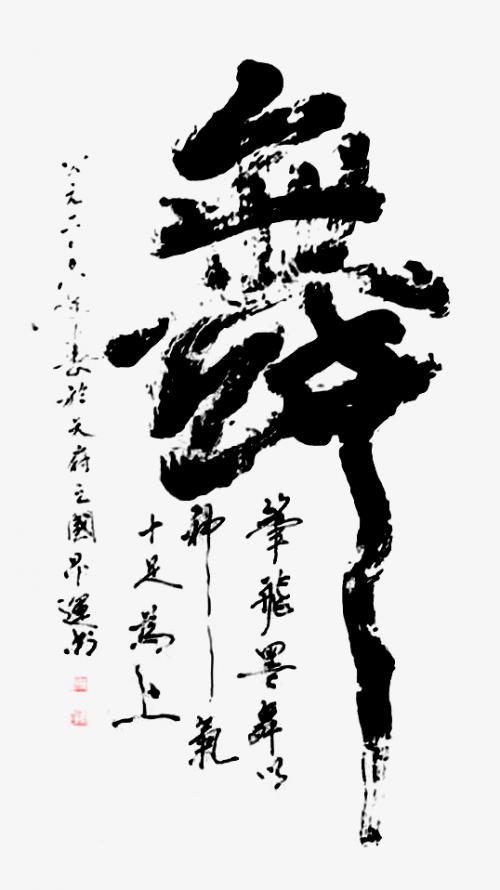 舞
筆飛墨舞以
神氣
十足為上
公元二〇〇八年春於天府之國運